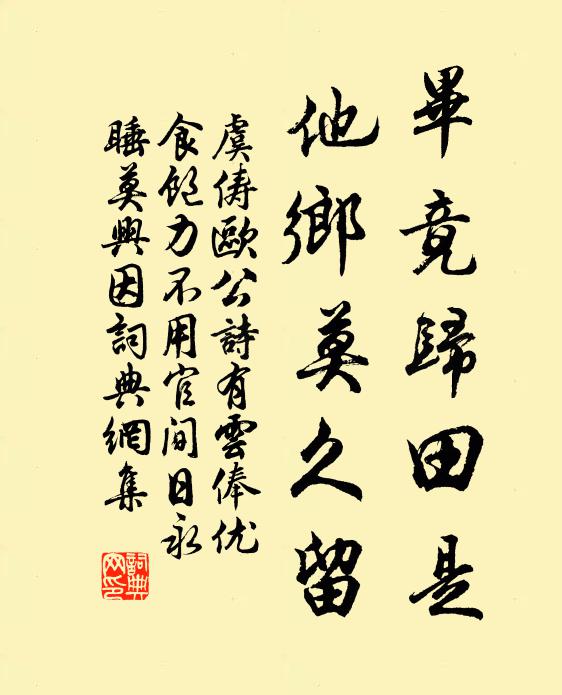 畢竟歸田是
他鄉莫久留
虞儔歐公詩有雲俸优
食飽力不用官间日永
睡莫興因詞典網集
詞典
网印